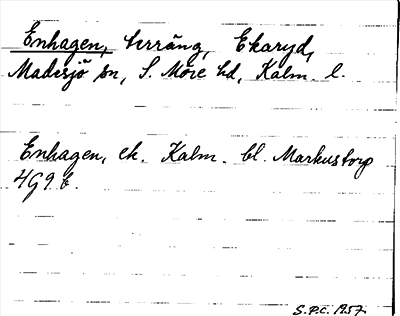 Enhagen, terräng, Ekaryd,
Madesjö sn, S. Möre hd, Kalm. l.
Enhagen, ek. Kalm. bl. Markustorp
4G9b.
S.P.C. 1957